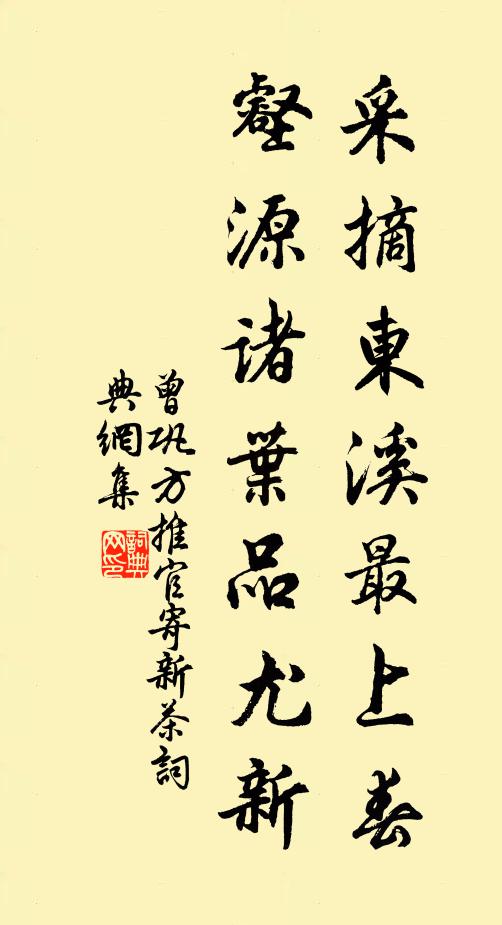 采摘東溪最上春
壑源諸葉品尤新
曾巩方推官寄新茶詞
典網集
詞典
网印